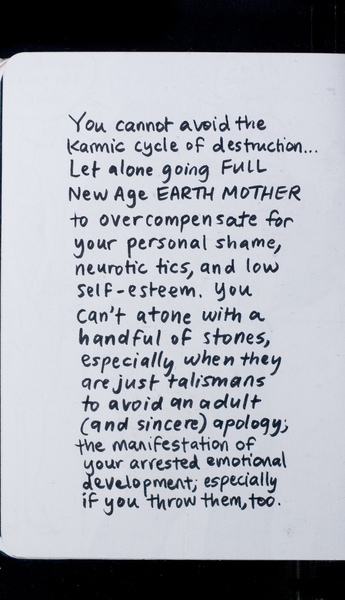 You cannot avoid the
Karmic cycle of destruction...
Let alone going FULL
New Age EARTH MOTHER
to overcompensate for
your personal shame,
neurotic tics, and low
self-esteem. You
can't atone with a
handful of stones,
especially when they
are just talismans
to avoid an adult
(and sincere) apology;
the manifestation of
your arrested emotional
development; especially
if you throw them, too.